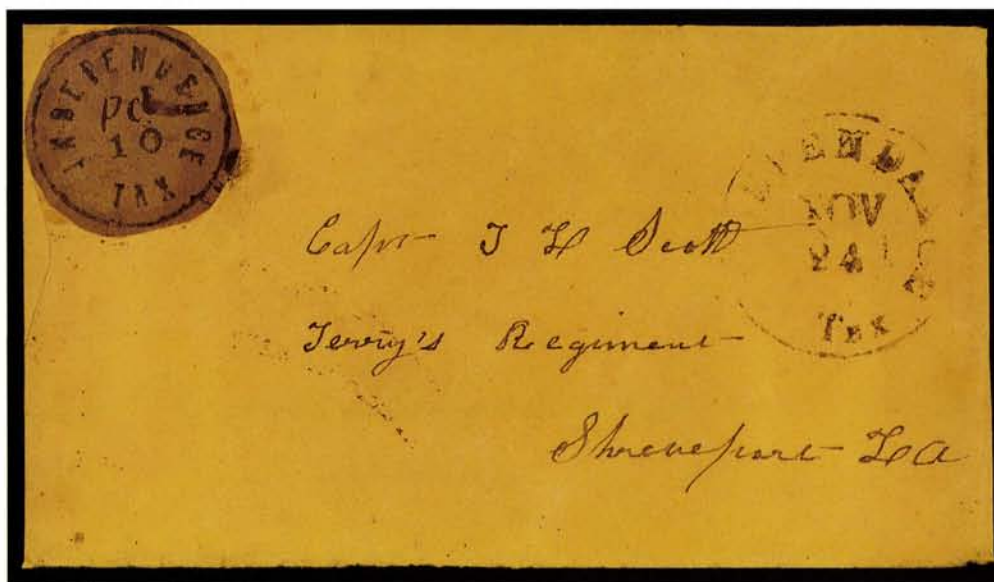 INDEPENDENCE
Pd
10
TEX
NOV
24
Tex
Capt T L Scott
Terry's Regiment
Shreveport LA